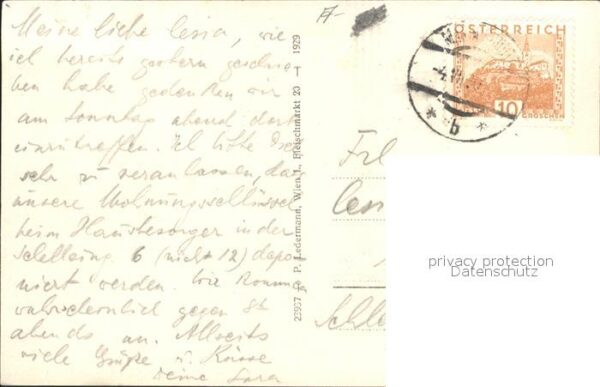 Meine liebe Cesia, wie
ich bereits gestern geschrie
ben habe gedenken wir
am Sonntag abend dort
einzutreffen. Ich bitte Dich
sehr zu veranlassen, dass
unsere Wohnungsschlüssel
beim Hausbesorger in der
Schelleing. 6 (nicht 12) depo
niert werden. Wir kommen
wahrscheinlich gegen
abends an. Allseits
viele Grüße u. Küsse
Deine
23937 P. Ledermann, Wien I., Fleischmarkt 20 T 1929
ÖSTERREICH
10
GROSCHEN
* b *
Frl
Schelle
privacy protection
Datenschutz